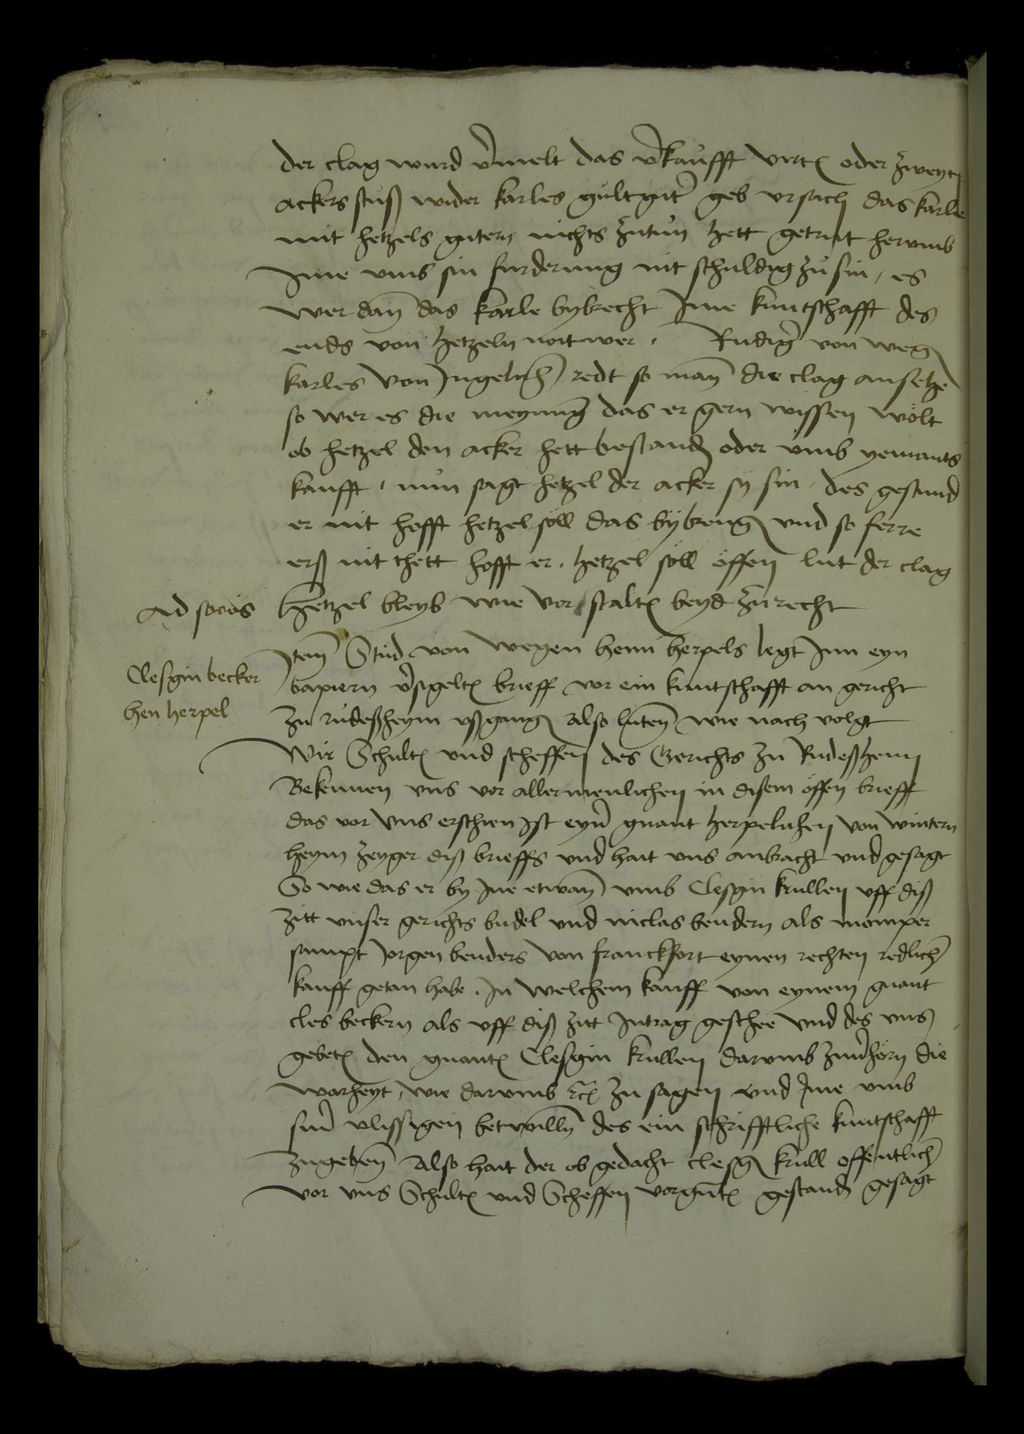 der clag wurd v͛melt das v͛kaufft virt(el) oder zweyer
ackers stuß wider karles gultgut geb ursach das karle
mit hetzels gutern nichts zutun hett getrut herumb
Ime umb sin furderung nit schuldig zu sin, es
wer dan̄ das karle bybrecht Ime kuntschafft des
ends von hetzeln noit wer. Rudig͛ von weg(en)
karles von Ingelnh(eim) redt so man̄ die clag ansehe
so wer es die meynung das er gern wissen wolt
ob hetzel den acker hett bestand(en) oder umb yemants
kaufft. nun sagt hetzel der acker sy sin. des gestund
er nit hofft hetzel soll das bybreng(en) und so ferre
erß nit thett hofft er. hetzel soll offen lut der clag
Ad socios Hetzel bleyb wie vor stalt(en) beyd zu recht
Item̄ Stud von wegen henn herpels legt Inn eyn
Clesgin becker bapiern v͛sigelt(en) brieff vor ein kuntschafft an gericht
hen herpel zu rudeßheym ußgang(en) also luten̄ wie nach volgt
Wir Schult(heiß) und scheffen des Gerichts zu Rudeßheym
Bekennen uns vor allermenlichen in disem offen brieff
das vor uns erschien ist eyn͛ gnant herpelnhen von wintern
heym zeyger diß brieffs und hait uns anbracht und gesagt
So wie das er by Ine etwan̄ umb Clesgin krullen uff diß
zitt unser gerichts budel und niclas bendern als momper
sampt Jorgen benders von franckfort eynen rechten redlich(en)
kauff getan habe. In welchem kauff von eynem gnant
cles beckern als uff diß zitt Intrag geschee und des uns
gebet(en) den gnant(en) Clesgin krullen darumb zuv͛horn die
warheyt, wie darumb etc zu sagen und Ime umb
sin͛ vlissigen betwilln̄ des ein schrifftliche kuntschafft
zugeben̄ Also hait der ob gedacht clesg(in) krull offentlich(en)
vor uns Schult(heiß) und Scheffen vorgn̄t(en) gestand(en) gesagt